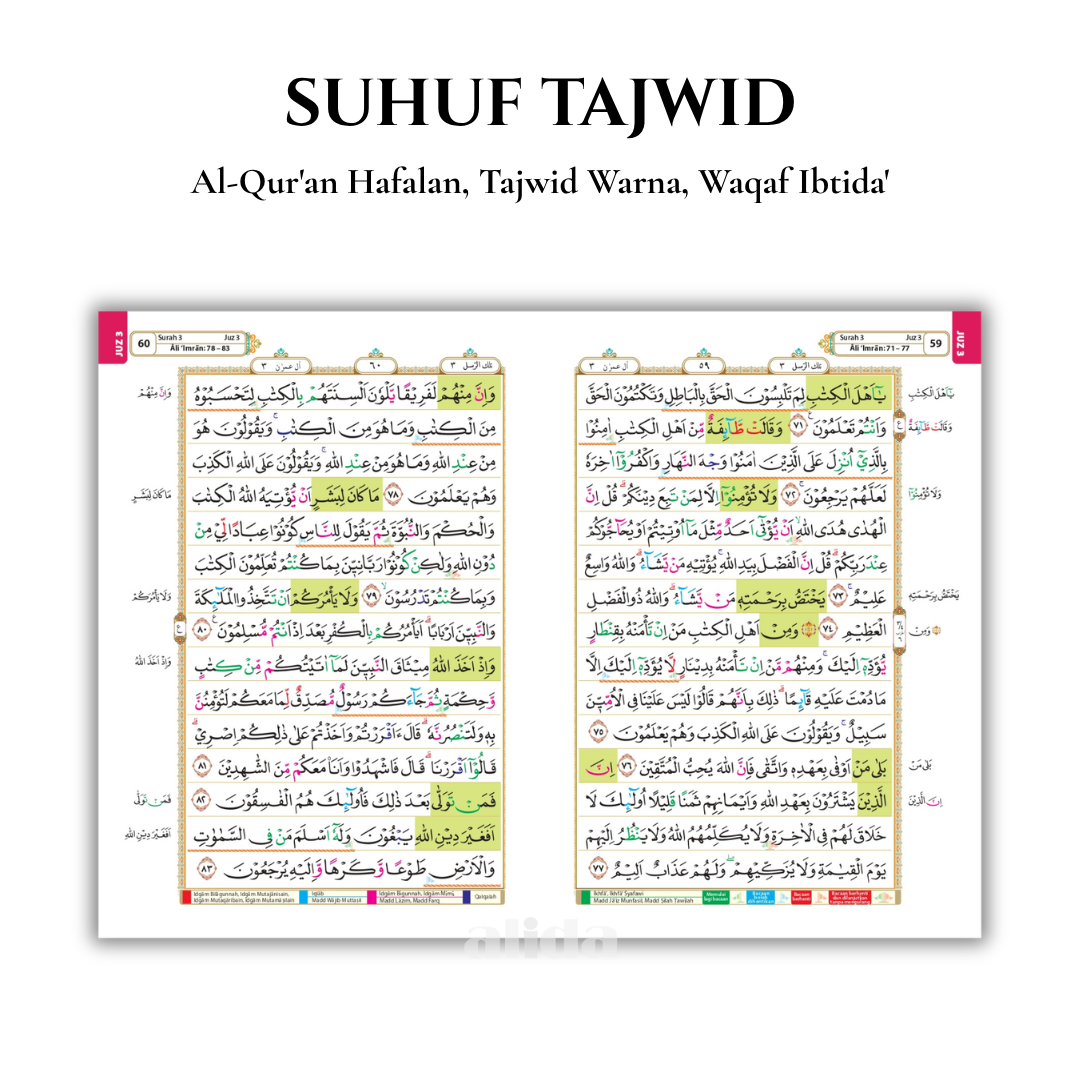 SUHUF TAJWID
Al-Qur'an Hafalan, Tajwid Warna, Waqaf Ibtida'
JUZ 3
59
Surah 3 Juz 3
Āli ‘Imrān: 71 – 77
تلك الرّسل ٣
٥٩
آل عمرٰن ٣
يٰٓاَهْلَ الْكِتٰبِ لِمَ تَلْبِسُوْنَ الْحَقَّ بِالْبَاطِلِ وَتَكْتُمُوْنَ الْحَقَّ
وَاَنْتُمْ تَعْلَمُوْنَ ࣖ ٧١ وَقَالَتْ طَّاۤىِٕفَةٌ مِّنْ اَهْلِ الْكِتٰبِ اٰمِنُوْا
بِالَّذِيْٓ اُنْزِلَ عَلَى الَّذِيْنَ اٰمَنُوْا وَجْهَ النَّهَارِ وَاكْفُرُوْٓا اٰخِرَهٗ
لَعَلَّهُمْ يَرْجِعُوْنَۚ ٧٢ وَلَا تُؤْمِنُوْٓا اِلَّا لِمَنْ تَبِعَ دِيْنَكُمْۗ قُلْ اِنَّ
الْهُدٰى هُدَى اللّٰهِۙ اَنْ يُّؤْتٰىٓ اَحَدٌ مِّثْلَ مَآ اُوْتِيْتُمْ اَوْ يُحَاۤجُّوْكُمْ
عِنْدَ رَبِّكُمْۗ قُلْ اِنَّ الْفَضْلَ بِيَدِ اللّٰهِۚ يُؤْتِيْهِ مَنْ يَّشَاۤءُۗ وَاللّٰهُ وَاسِعٌ
عَلِيْمٌۚ ٧٣ يَخْتَصُّ بِرَحْمَتِهٖ مَنْ يَّشَاۤءُۗ وَاللّٰهُ ذُو الْفَضْلِ
الْعَظِيْمِ ٧٤ ۞ وَمِنْ اَهْلِ الْكِتٰبِ مَنْ اِنْ تَأْمَنْهُ بِقِنْطَارٍ
يُّؤَدِّهٖٓ اِلَيْكَۚ وَمِنْهُمْ مَّنْ اِنْ تَأْمَنْهُ بِدِيْنَارٍ لَّا يُؤَدِّهٖٓ اِلَيْكَ اِلَّا
مَا دُمْتَ عَلَيْهِ قَاۤىِٕمًاۗ ذٰلِكَ بِاَنَّهُمْ قَالُوْا لَيْسَ عَلَيْنَا فِى الْاُمِّيّٖنَ
سَبِيْلٌۚ وَيَقُوْلُوْنَ عَلَى اللّٰهِ الْكَذِبَ وَهُمْ يَعْلَمُوْنَ ٧٥
بَلٰى مَنْ اَوْفٰى بِعَهْدِهٖ وَاتَّقٰى فَاِنَّ اللّٰهَ يُحِبُّ الْمُتَّقِيْنَ ٧٦ اِنَّ
الَّذِيْنَ يَشْتَرُوْنَ بِعَهْدِ اللّٰهِ وَاَيْمَانِهِمْ ثَمَنًا قَلِيْلًا اُولٰۤىِٕكَ لَا
خَلَاقَ لَهُمْ فِى الْاٰخِرَةِ وَلَا يُكَلِّمُهُمُ اللّٰهُ وَلَا يَنْظُرُ اِلَيْهِمْ
يَوْمَ الْقِيٰمَةِ وَلَا يُزَكِّيْهِمْۖ وَلَهُمْ عَذَابٌ اَلِيْمٌ ٧٧
يٰٓاَهْلَ الْكِتٰبِ
وَقَالَتْ طَّاۤىِٕفَةٌ
وَلَا تُؤْمِنُوْٓا
يَخْتَصُّ بِرَحْمَتِهٖ
۞ وَمِنْ
بَلٰى مَنْ
اِنَّ الَّذِيْنَ
Ikhfā', Ikhfā' Syafawi
Madd Jā'iz Munfaṣil, Madd Ṣilah Ṭawīlah
Memulai lagi bacaan
Bacaan boleh dihentikan
Bacaan berhenti
Bacaan berhenti dan dilanjutkan tanpa mengulang
JUZ 3
60
Surah 3 Juz 3
Āli ‘Imrān: 78 – 83
تلك الرّسل ٣
٦٠
آل عمرٰن ٣
وَاِنَّ مِنْهُمْ لَفَرِيْقًا يَّلْوٗنَ اَلْسِنَتَهُمْ بِالْكِتٰبِ لِتَحْسَبُوْهُ
مِنَ الْكِتٰبِ وَمَا هُوَ مِنَ الْكِتٰبِۚ وَيَقُوْلُوْنَ هُوَ
مِنْ عِنْدِ اللّٰهِ وَمَا هُوَ مِنْ عِنْدِ اللّٰهِۚ وَيَقُوْلُوْنَ عَلَى اللّٰهِ الْكَذِبَ
وَهُمْ يَعْلَمُوْنَ ٧٨ مَا كَانَ لِبَشَرٍ اَنْ يُّؤْتِيَهُ اللّٰهُ الْكِتٰبَ
وَالْحُكْمَ وَالنُّبُوَّةَ ثُمَّ يَقُوْلَ لِلنَّاسِ كُوْنُوْا عِبَادًا لِّيْ مِنْ
دُوْنِ اللّٰهِ وَلٰكِنْ كُوْنُوْا رَبَّانِيّٖنَ بِمَا كُنْتُمْ تُعَلِّمُوْنَ الْكِتٰبَ
وَبِمَا كُنْتُمْ تَدْرُسُوْنَۙ ٧٩ وَلَا يَأْمُرَكُمْ اَنْ تَتَّخِذُوا الْمَلٰۤىِٕكَةَ
وَالنَّبِيّٖنَ اَرْبَابًاۗ اَيَأْمُرُكُمْ بِالْكُفْرِ بَعْدَ اِذْ اَنْتُمْ مُّسْلِمُوْنَ ࣖ ٨٠
وَاِذْ اَخَذَ اللّٰهُ مِيْثَاقَ النَّبِيّٖنَ لَمَآ اٰتَيْتُكُمْ مِّنْ كِتٰبٍ
وَّحِكْمَةٍ ثُمَّ جَاۤءَكُمْ رَسُوْلٌ مُّصَدِّقٌ لِّمَا مَعَكُمْ لَتُؤْمِنُنَّ
بِهٖ وَلَتَنْصُرُنَّهٗۗ قَالَ ءَاَقْرَرْتُمْ وَاَخَذْتُمْ عَلٰى ذٰلِكُمْ اِصْرِيْۗ
قَالُوْٓا اَقْرَرْنَاۗ قَالَ فَاشْهَدُوْا وَاَنَا۠ مَعَكُمْ مِّنَ الشّٰهِدِيْنَ ٨١
فَمَنْ تَوَلّٰى بَعْدَ ذٰلِكَ فَاُولٰۤىِٕكَ هُمُ الْفٰسِقُوْنَ ٨٢
اَفَغَيْرَ دِيْنِ اللّٰهِ يَبْغُوْنَ وَلَهٗٓ اَسْلَمَ مَنْ فِى السَّمٰوٰتِ
وَالْاَرْضِ طَوْعًا وَّكَرْهًا وَّاِلَيْهِ يُرْجَعُوْنَ ٨٣
وَاِنَّ مِنْهُمْ
مَا كَانَ لِبَشَرٍ
وَلَا يَأْمُرَكُمْ
وَاِذْ اَخَذَ اللّٰهُ
فَمَنْ تَوَلّٰى
اَفَغَيْرَ دِيْنِ اللّٰهِ
Idgām Bilāgunnah, Idgām Mutajānisain,
Idgām Mutaqāribain, Idgām Mutamāṡilain
Iqlāb
Madd Wājib Muttaṣil
Idgām Bigunnah, Idgām Mīmī,
Madd Lāzim, Madd Farq
Qalqalah
alida